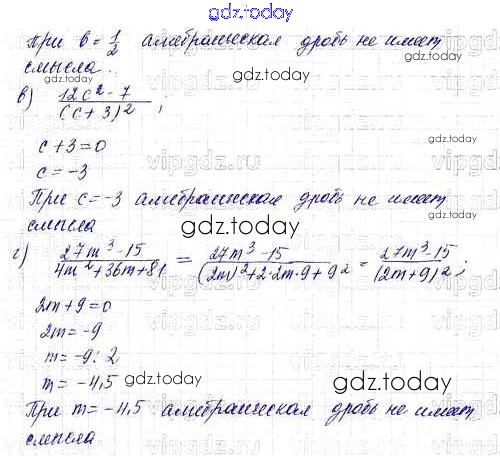 gdz.today
При b = 1/2 алгебраическая дробь не имеет
смысла.
gdz.today
gdz.today
в) (12c² - 7)/(c + 3)² ;
vipgdz.ru
c + 3 = 0
gdz.today
c = -3
vipgdz.ru
vipgdz.ru
При c = -3 алгебраическая дробь не имеет
смысла
gdz.today
г) (27m³ - 15)/(4m² + 36m + 81) = (27m³ - 15)/((2m)² + 2·2m·9 + 9²) = (27m³ - 15)/(2m + 9)² ;
2m + 9 = 0
vipgdz.ru
vipgdz.ru
2m = -9
m = -9 : 2
m = -4,5
gdz.today
gdz.today
При m = -4,5 алгебраическая дробь не имеет
смысла
gdz.today